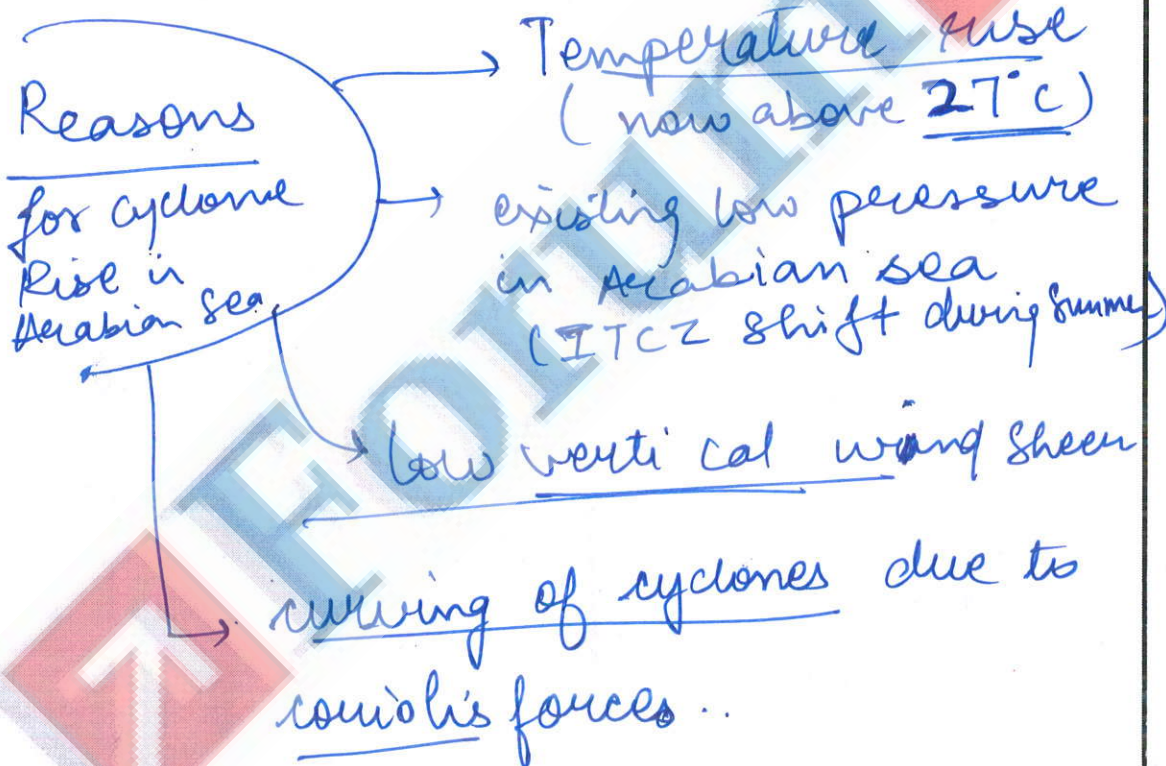 Reasons
for cyclone
Rise in
Arabian Sea
Temperature rise
(now above 27°C)
existing low pressure
in Arabian sea
(ITCZ shift during Summer)
low vertical wind Sheer
curving of cyclones due to
coriolis forces..
Forum